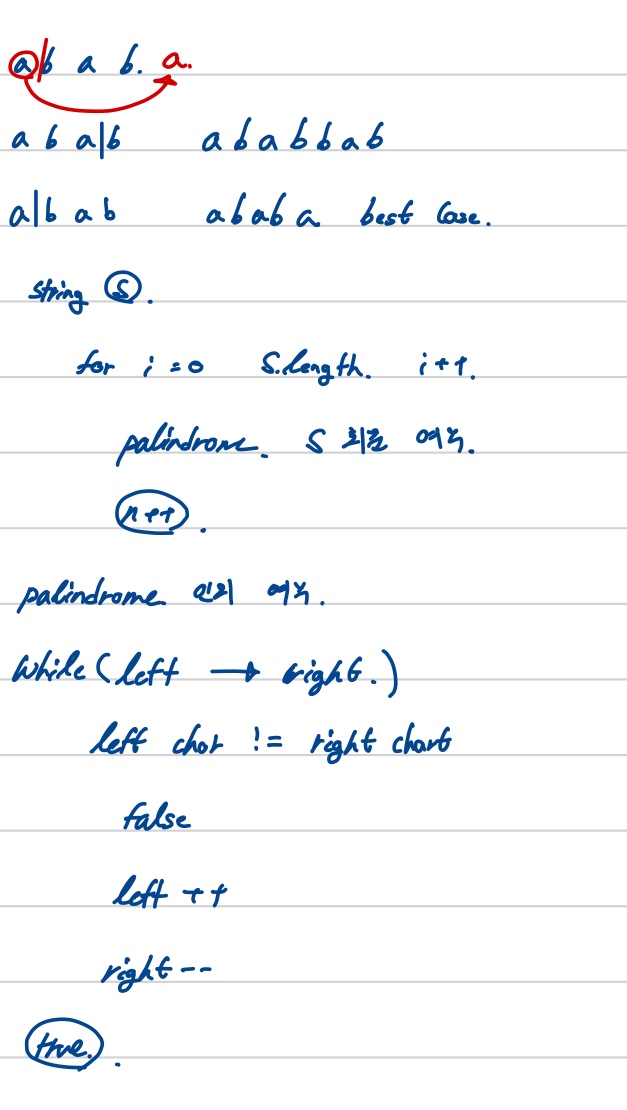 a|b a b. a.
a b a|b a b a b b a b
a|b a b a b a b a best Case.
string S.
for i = 0 S.length. i++.
palindrome. S 회문 여부.
n++.
palindrome 인지 여부.
While (left → right.)
left char != right chart
false
left ++
right --
true.